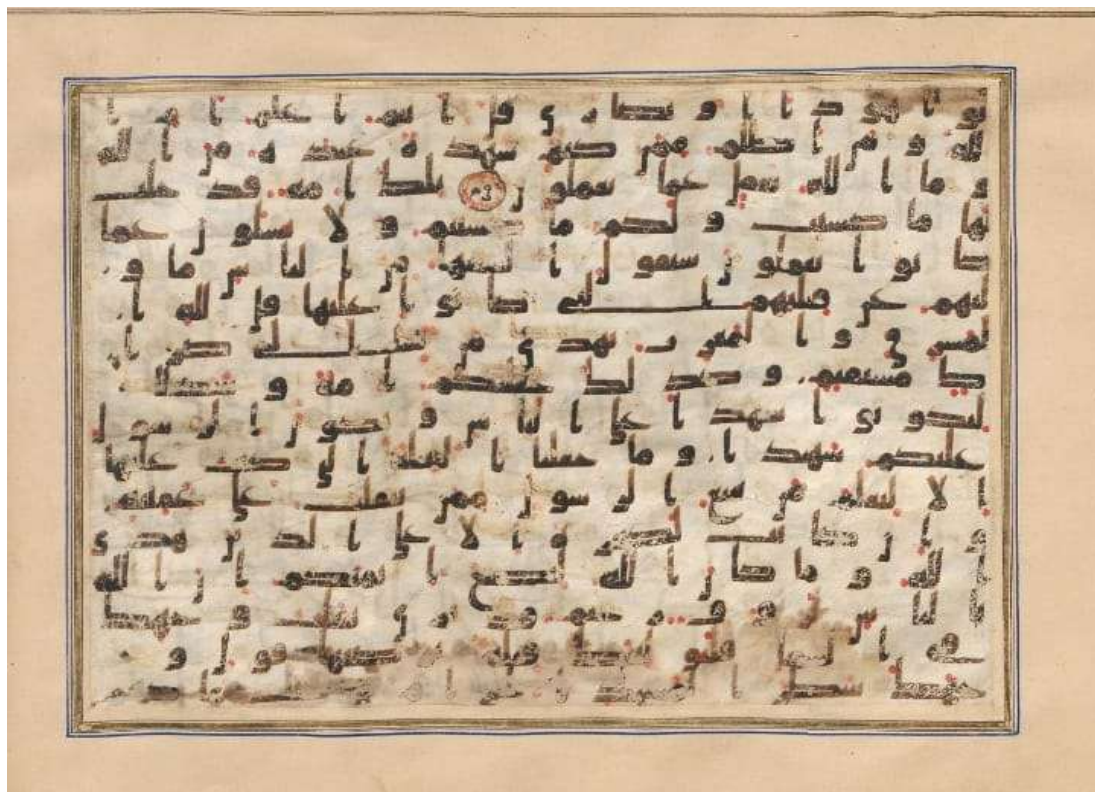 نوا هودا او نصارى قل اانتم اعلم ام ا
لله و من اظلم ممن كتم شهدة عنده من الله
و ما الله بغفل عما تعملون تلك امة قد خلت
لها ما كسبت و لكم ما كسبتم و لا تسلون عما
كانوا يعملون سيقول السفها من الناس ما و
ليهم عن قبلتهم التي كانوا عليها قل لله ا
لمشرق و المغرب يهدي من يشا الى صر
ط مستقيم و كذلك جعلنكم امة وسطا
لتكونوا شهدا على الناس و يكون الرسول
عليكم شهيدا و ما جعلنا القبلة التي كنت عليها
الا لنعلم من يتبع الرسول ممن ينقلب على عقبيه
و ان كانت لكبيرة الا على الذين هدى
الله و ما كان الله ليضيع ايمنكم ان الله
بالناس لروف رحيم قد نرى تقلب وجهك
في السما فلنولينك قبلة ترضيها فول و
جهك شطر المسجد الحرام و حيث ما كنتم